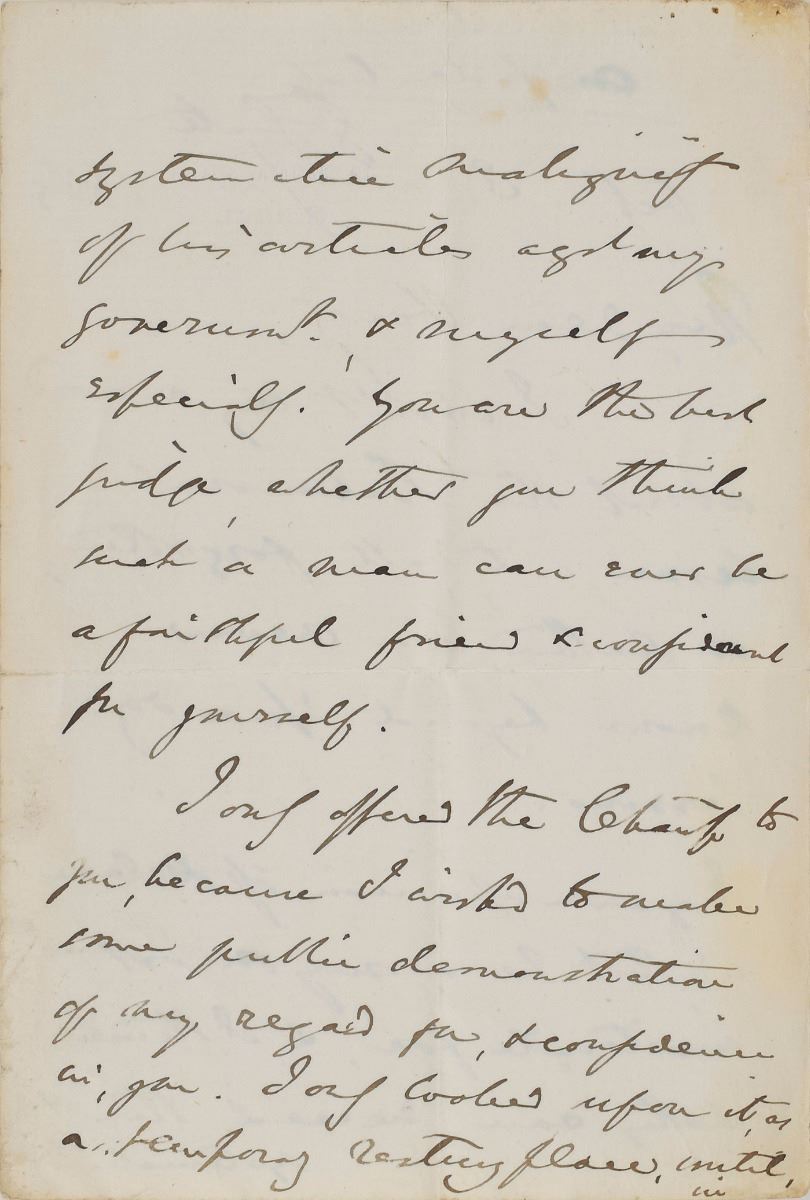 systematic malignity
of his articles agst my
governmt., & myself
especially. You are the best
judge, whether you think
such a man can ever be
a faithful friend & confidant
for yourself.
I only offered the to
you, because I wish'd to make
some public demonstration
of my regard for, & confidence
in, you. I only looked upon it, as
a temporary resting place, until,
in